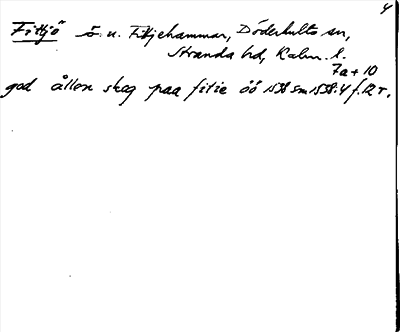 4
Fittjö ö. u. Fittjehammar, Döderhults sn,
Stranda hd, Kalm. l.
7a + 10
god ållon skog paa fitie öö 1538 Sm 1538:4 f. 12 r.